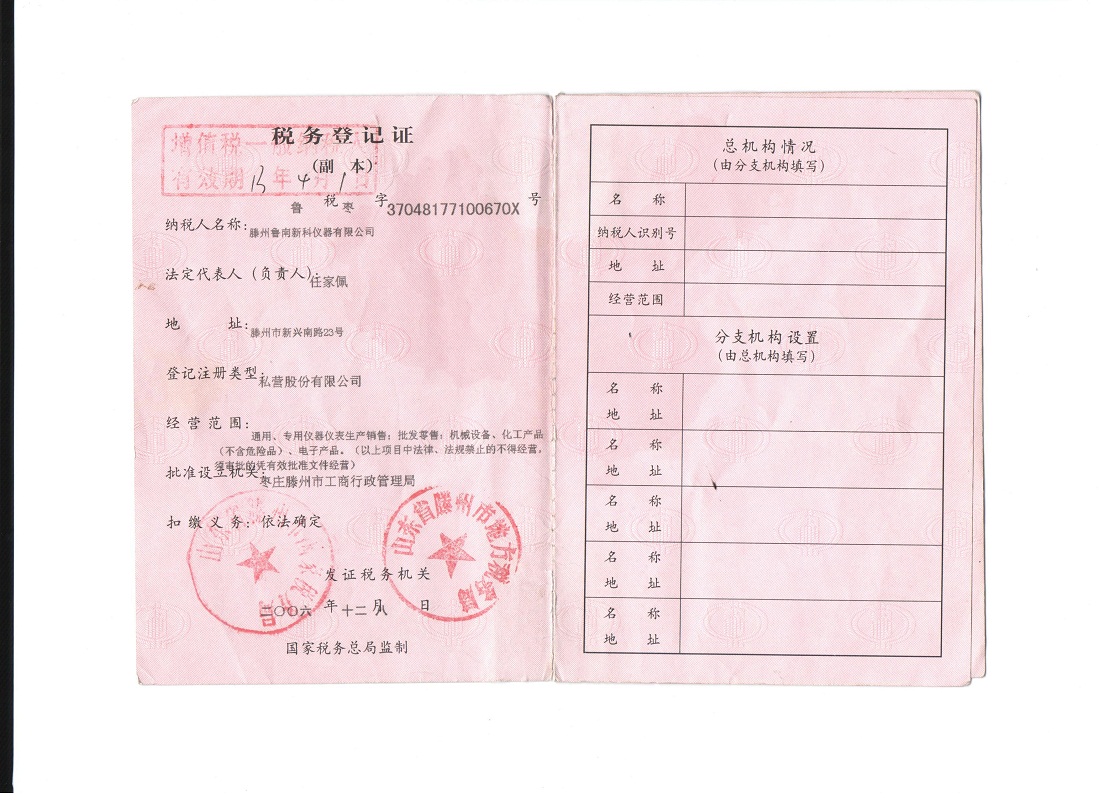 税务登记证
(副 本)
增值税一般纳税人
有效期 13 年 4 月 1 日
鲁 税 枣 字 37048177100670X 号
纳税人名称: 滕州鲁南新科仪器有限公司
法定代表人(负责人): 任家佩
地 址: 滕州市新兴南路23号
登记注册类型: 私营股份有限公司
经营范围:
通用、专用仪器仪表生产销售；批发零售：机械设备、化工产品
(不含危险品)、电子产品。(以上项目中法律、法规禁止的不得经营,
须审批的凭有效批准文件经营)
批准设立机关: 枣庄滕州市工商行政管理局
扣缴义务: 依法确定
山东省滕州市地方税务局
发证税务机关
二〇〇六 年 十二 月 八 日
国家税务总局监制
总机构情况
(由分支机构填写)
名 称
纳税人识别号
地 址
经营范围
分支机构设置
(由总机构填写)
名 称
地 址
名 称
地 址
名 称
地 址
名 称
地 址
名 称
地 址